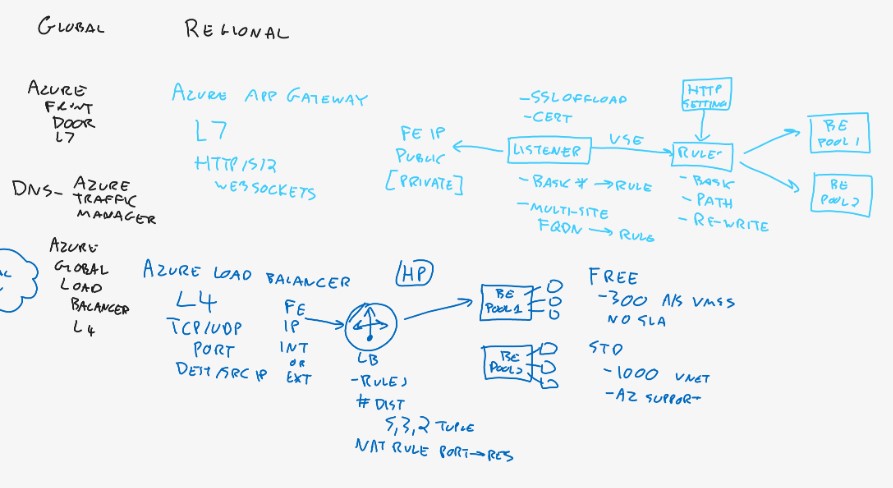 GLOBAL
REGIONAL
AZURE
FRONT
DOOR
L7
DNS- AZURE
TRAFFIC
MANAGER
AZURE
GLOBAL
LOAD
BALANCER
L4
AZURE APP GATEWAY
L7
HTTP/S/2
WEBSOCKETS
FE IP
PUBLIC
[PRIVATE]
-SSL OFFLOAD
-CERT
LISTENER
USE
- BASIC * → RULE
- MULTI-SITE
FQDN → RULE
HTTP
SETTING
RULE
- BASIC
- PATH
- RE-WRITE
BE
POOL 1
BE
POOL 2
AZURE LOAD BALANCER
L4
TCP/UDP
PORT
DEST/SRC IP
FE
IP
INT
OR
EXT
HP
LB
-RULES
# DIST
5,3,2 TUPLE
NAT RULE PORT→RES
BE
POOL 1
BE
POOL 2
FREE
-300 A/S VMSS
NO SLA
STD
-1000 VNET
-AZ SUPPORT